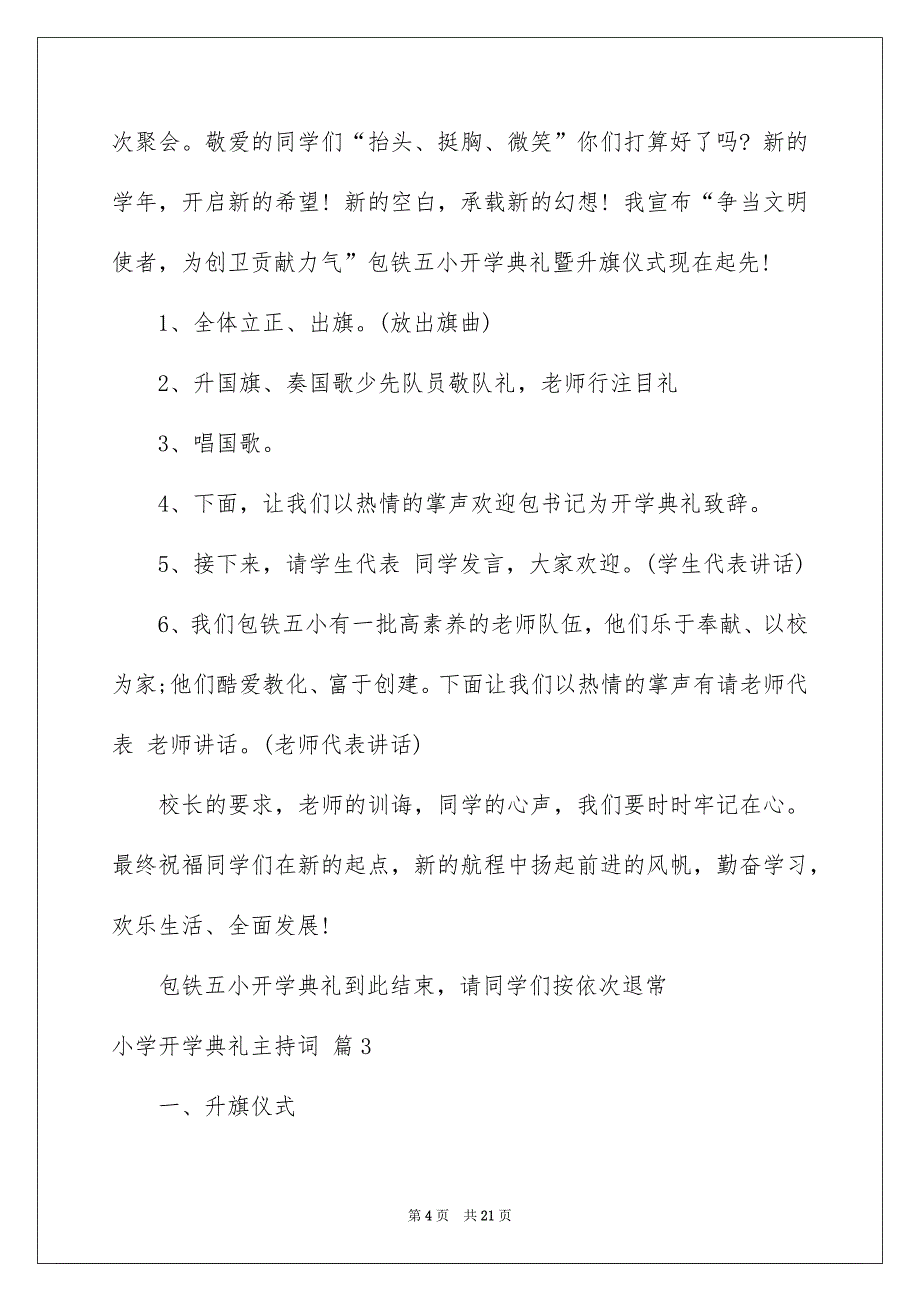 次聚会。敬爱的同学们“抬头、挺胸、微笑”你们打算好了吗? 新的
学年，开启新的希望! 新的空白，承载新的幻想! 我宣布“争当文明
使者，为创卫贡献力气”包铁五小开学典礼暨升旗仪式现在起先!
1、全体立正、出旗。(放出旗曲)
2、升国旗、奏国歌少先队员敬队礼，老师行注目礼
3、唱国歌。
4、下面，让我们以热情的掌声欢迎包书记为开学典礼致辞。
5、接下来，请学生代表 同学发言，大家欢迎。(学生代表讲话)
6、我们包铁五小有一批高素养的老师队伍，他们乐于奉献、以校
为家;他们酷爱教化、富于创建。下面让我们以热情的掌声有请老师代
表 老师讲话。(老师代表讲话)
校长的要求，老师的训诲，同学的心声，我们要时时牢记在心。
最终祝福同学们在新的起点，新的航程中扬起前进的风帆，勤奋学习，
欢乐生活、全面发展!
包铁五小开学典礼到此结束，请同学们按依次退常
小学开学典礼主持词 篇3
一、升旗仪式
第 4 页 共 21 页